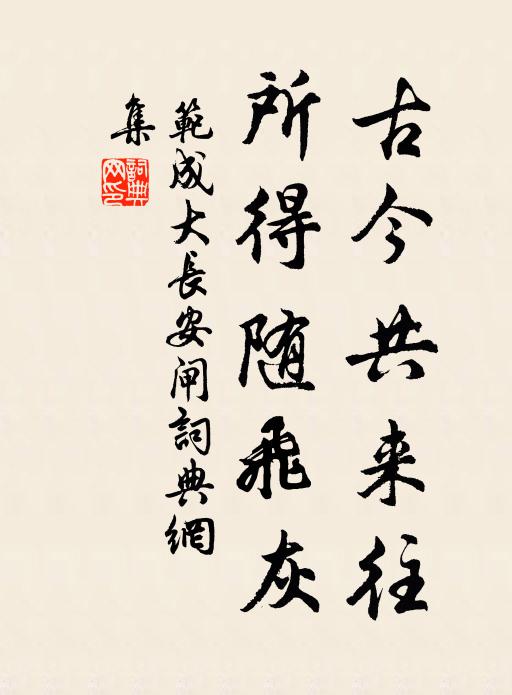 古今共来往
所得随飛灰
範成大長安闸詞典網
集
詞典
网印